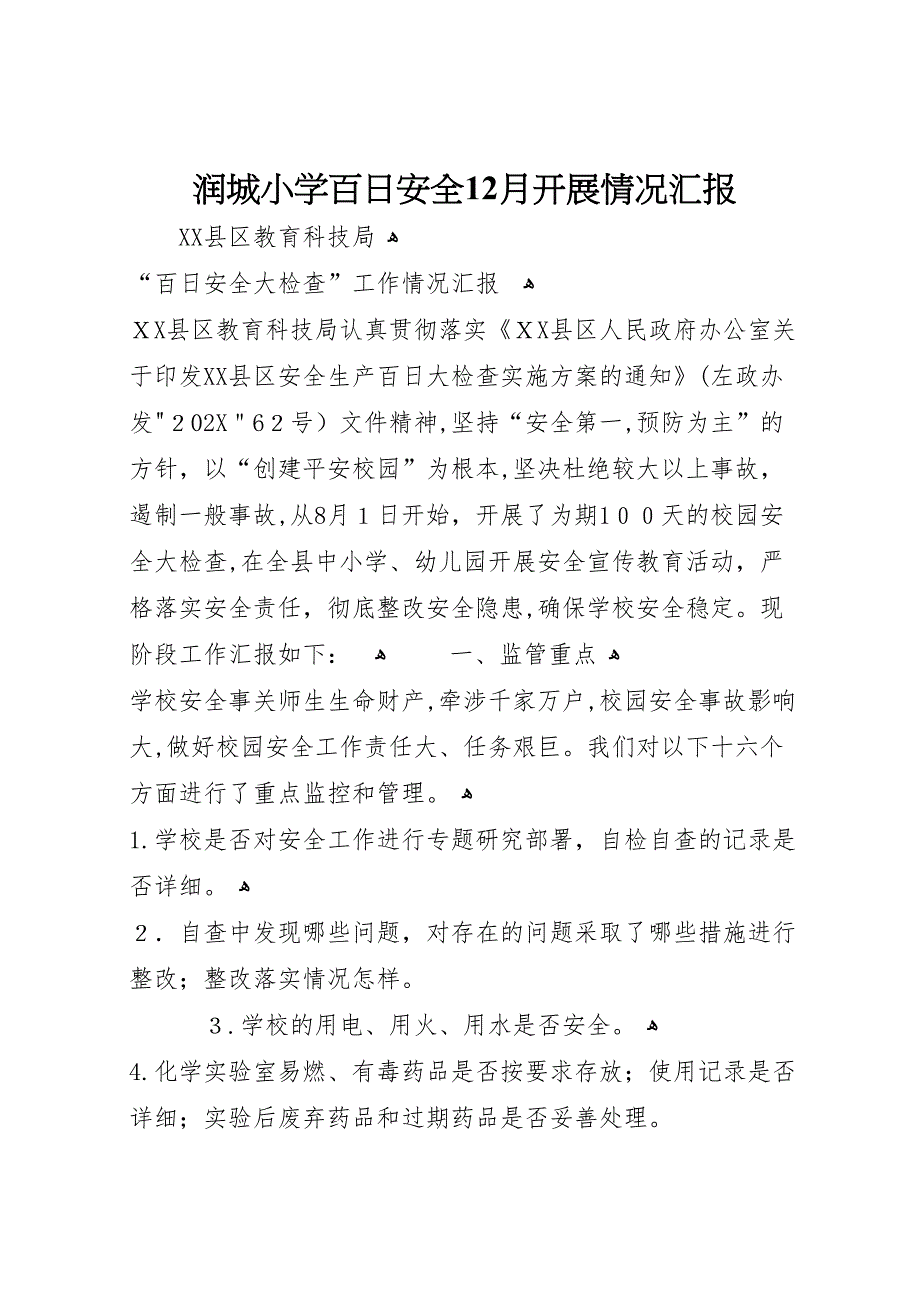 润城小学百日安全12月开展情况汇报
XX县区教育科技局 ﻫ
“百日安全大检查”工作情况汇报 ﻫ
ＸX县区教育科技局认真贯彻落实《ＸX县区人民政府办公室关
于印发XX县区安全生产百日大检查实施方案的通知》(左政办
发"２02X＂6２号）文件精神,坚持“安全第一,预防为主”的
方针，以“创建平安校园”为根本,坚决杜绝较大以上事故，
遏制一般事故,从8月１日开始，开展了为期1００天的校园安
全大检查,在全县中小学、幼儿园开展安全宣传教育活动，严
格落实安全责任，彻底整改安全隐患,确保学校安全稳定。现
阶段工作汇报如下： ﻫ 一、监管重点 ﻫ
学校安全事关师生生命财产,牵涉千家万户,校园安全事故影响
大,做好校园安全工作责任大、任务艰巨。我们对以下十六个
方面进行了重点监控和管理。 ﻫ
1.学校是否对安全工作进行专题研究部署，自检自查的记录是
否详细。 ﻫ
２．自查中发现哪些问题，对存在的问题采取了哪些措施进行
整改；整改落实情况怎样。
３.学校的用电、用火、用水是否安全。 ﻫ
4.化学实验室易燃、有毒药品是否按要求存放；使用记录是否
详细；实验后废弃药品和过期药品是否妥善处理。